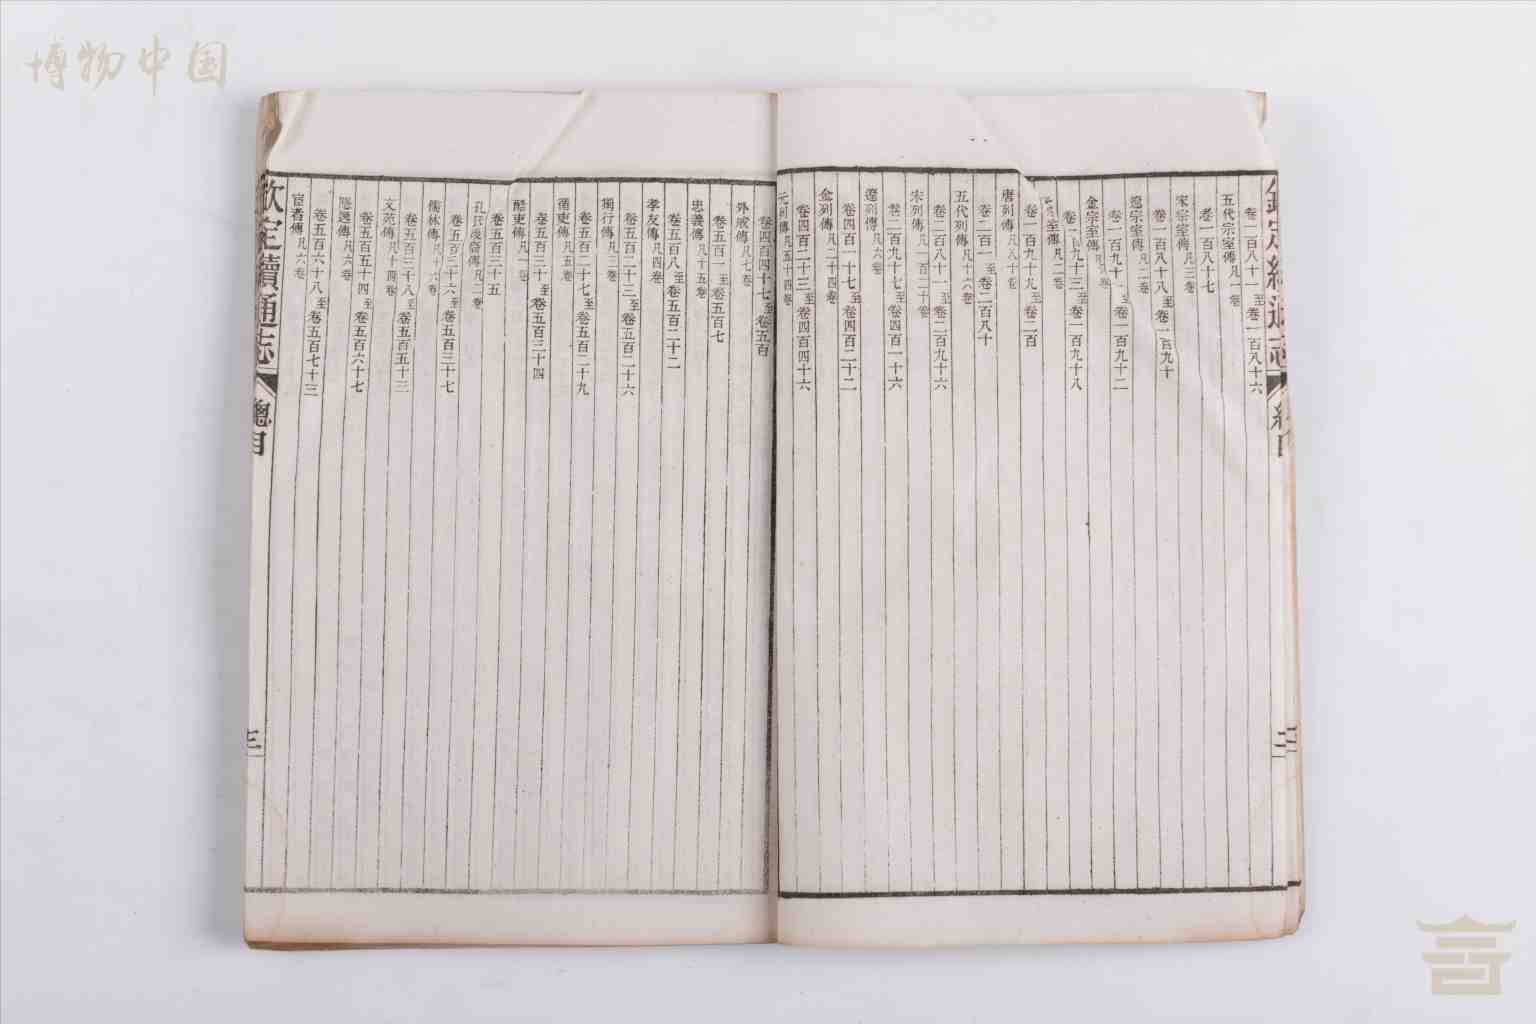 博物中国
卷一百八十一至卷一百八十六
五代宗室傳凡一卷
卷一百八十七
宋宗室傳凡三卷
卷一百八十八至卷一百九十
遼宗室傳凡二卷
卷一百九十一至卷一百九十二
金宗室傳凡卷
卷一百九十三至卷一百九十八
室傳凡二卷
卷一百九十九至卷二百
唐列傳凡八十卷
卷二百一至卷二百八十
五代列傳凡十六卷
卷二百八十一至卷二百九十六
宋列傳凡一百二十卷
卷二百九十七至卷四百一十六
遼列傳凡六卷
卷四百一十七至卷四百二十二
金列傳凡二十四卷
卷四百二十三至卷四百四十六
元列傳凡五十四卷
卷四百四十七至卷五百
外戚傳凡七卷
卷五百一至卷五百七
忠義傳凡十五卷
卷五百八至卷五百二十二
孝友傳凡四卷
卷五百二十三至卷五百二十六
獨行傳凡三卷
卷五百二十七至卷五百二十九
循吏傳凡五卷
卷五百三十至卷五百三十四
酷吏傳凡一卷
卷五百三十五
孔氏後裔傳凡二卷
卷五百三十六至卷五百三十七
儒林傳凡十六卷
卷五百三十八至卷五百五十三
文苑傳凡十四卷
卷五百五十四至卷五百六十七
隱逸傳凡六卷
卷五百六十八至卷五百七十三
宦者傳凡六卷
欽定續通志
總目
三